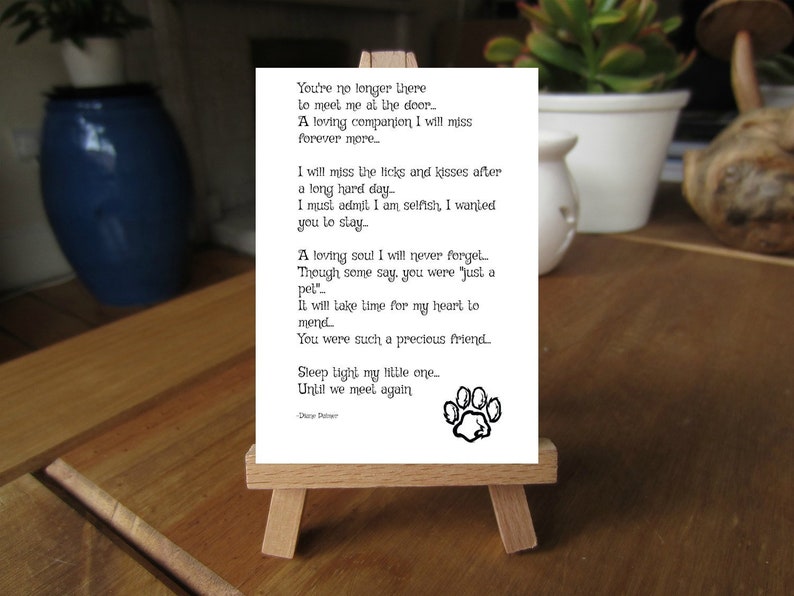 You're no longer there
to meet me at the door...
A loving companion I will miss
forever more...
I will miss the licks and kisses after
a long hard day...
I must admit I am selfish, I wanted
you to stay...
A loving soul I will never forget...
Though some say, you were "just a
pet"...
It will take time for my heart to
mend...
You were such a precious friend...
Sleep tight my little one...
Until we meet again
-Diane Painer